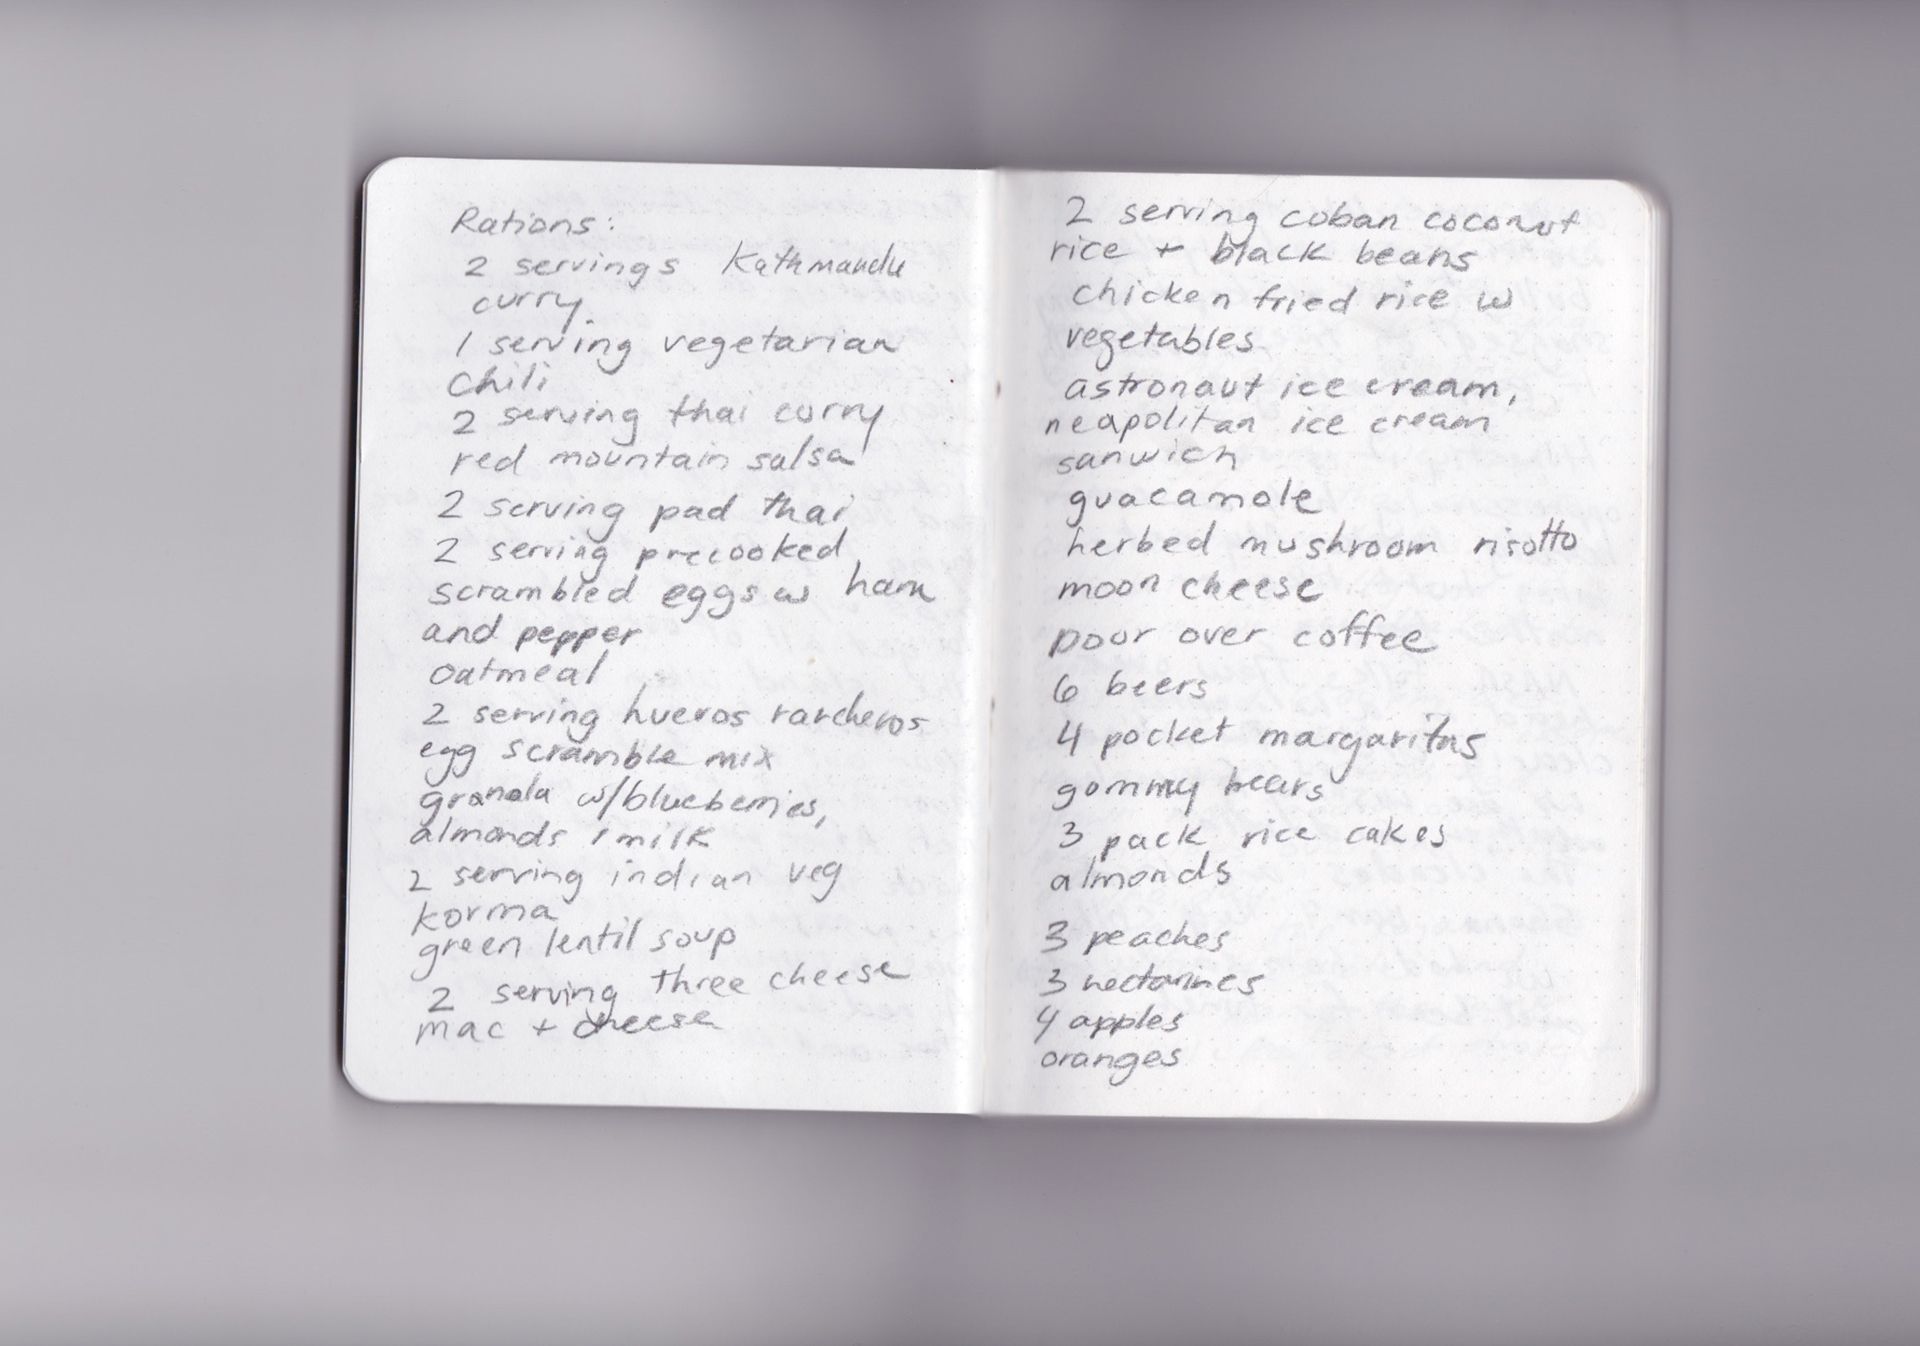 Rations:
2 servings Kathmandu
curry
1 serving vegetarian
chili
2 serving thai curry
red mountain salsa
2 serving pad thai
2 serving precooked
scrambled eggs w ham
and pepper
oatmeal
2 serving hueros rancheros
egg scramble mix
granola w/blueberries,
almonds / milk
2 serving indian veg
korma
green lentil soup
2 serving three cheese
mac + cheese
2 serving cuban coconut
rice + black beans
chicken fried rice w
vegetables
astronaut ice cream,
neapolitan ice cream
sanwich
guacamole
herbed mushroom risotto
moon cheese
pour over coffee
6 beers
4 pocket margaritas
gummy bears
3 pack rice cakes
almonds
3 peaches
3 nectarines
4 apples
oranges